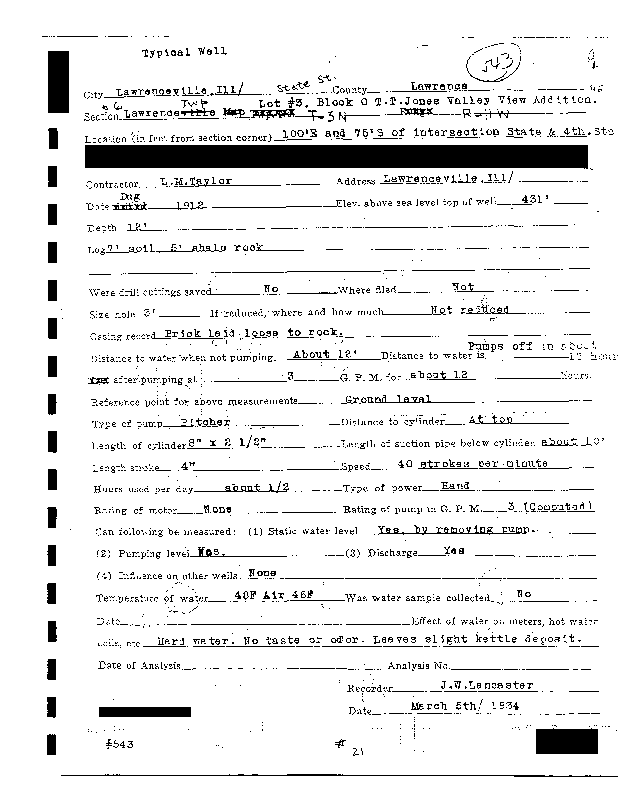 Typical Well
543
City Lawrenceville, Ill/ State St. County Lawrence
Section 6 Lawrence Twp Lot #3. Block O T.T.Jones Valley View Addition.
T-3N R-11W
Location (in feet from section corner) 100'E and 75'S of intersection State & 4th. Sts
Contractor L.M.Taylor Address Lawrenceville, Ill/
Date Dug 1912 Elev. above sea level top of well 431'
Depth 12'
Log 7' soil 5' shale rock
Were drill cuttings saved No Where filed Not
Size hole 3' If reduced, where and how much Not reduced
Casing record Brick laid loose to rock.
Pumps off in about
Distance to water when not pumping. About 12' Distance to water is 12 hour
after pumping at 3 G. P. M. for about 12 hours.
Reference point for above measurements Ground level
Type of pump Pitcher Distance to cylinder At top
Length of cylinder 8" x 2 1/2" Length of suction pipe below cylinder about 10'
Length stroke 4" Speed 40 strokes per minute
Hours used per day about 1/2 Type of power Hand
Rating of motor None Rating of pump in G. P. M. 3 (Computed)
Can following be measured: (1) Static water level Yes, by removing pump.
(2) Pumping level (3) Discharge Yes
(4) Influence on other wells None
Temperature of water 48F Air 46F Was water sample collected No
Date Effect of water on meters, hot water
coils, etc Hard water. No taste or odor. Leaves slight kettle deposit.
Date of Analysis Analysis No.
Recorder J.W.Lancaster
Date March 5th/ 1934
#543 # 21